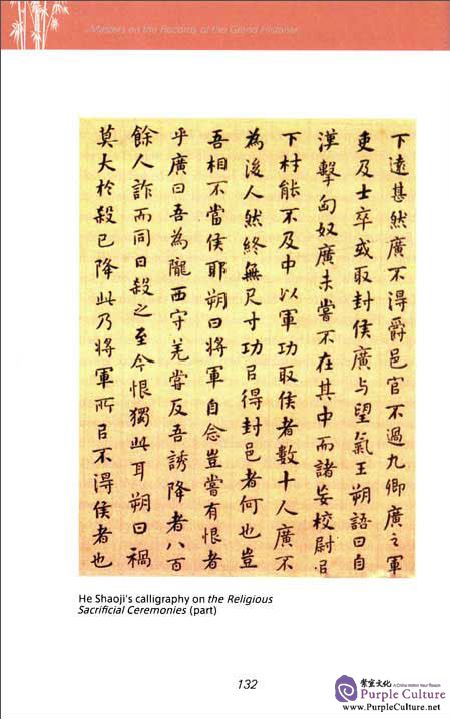 Masters on the Records of the Grand Historian
下遠甚然廣不得爵邑官不過九卿廣之軍
吏及士卒或取封侯廣与望氣王朔語曰自
漢擊匈奴廣未嘗不在其中而諸妄校尉㠯
下材能不及中以軍功取侯者數十人廣不
為後人然終無尺寸功㠯得封邑者何也豈
吾相不當侯耶朔曰將軍自念豈嘗有恨者
乎廣曰吾為隴西守羌嘗反吾誘降者八百
餘人詐而同日殺之至今恨獨此耳朔曰禍
莫大於殺已降此乃將軍所㠯不得侯者也
He Shaoji's calligraphy on the Religious
Sacrificial Ceremonies (part)
132
紫宣文化 A China Within Your Reach
Purple Culture
www.PurpleCulture.net